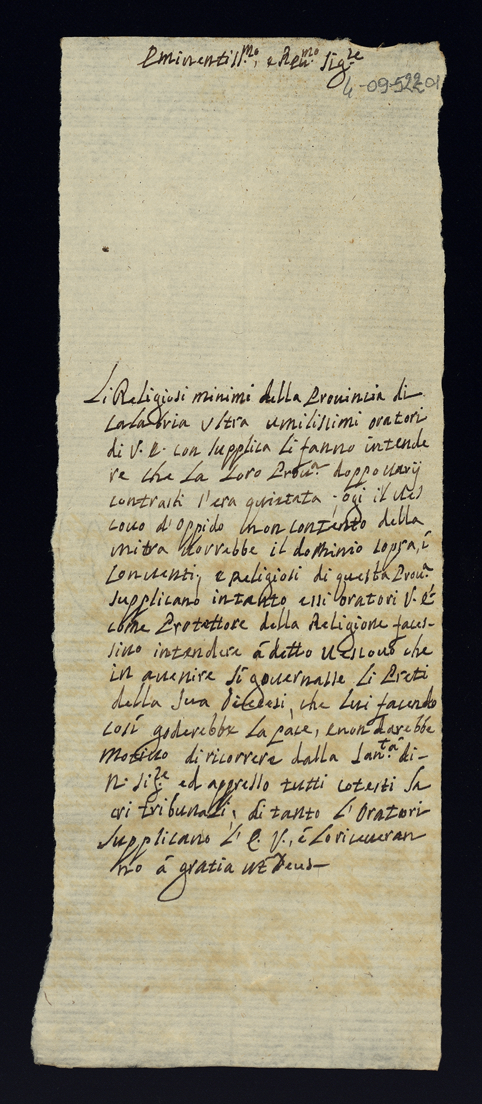 Eminentiss.mo, e Reu.mo Sig.re
4-09-522201
Li Religiosi minimi della Prouincia di
Calabria ultra umilissimi oratori
di V. E. con supplica li fanno intende
re che la loro Prou.a doppo uarij
contrasti s'era quietata. ogi il Ves
couo d'Oppido non contento della
mitra vorrebbe il dominio sopra, i
Conuenti, e Religiosi di questa Prou.a
supplicano intanto essi oratori V. E.
come Protettore della Religione faces-
sino intendere á detto uescouo che
in auenire si gouernasse li Preti
della sua Diecesi, che lui facendo
cosí goderebbe la pace, e non darebbe
motiuo di ricorrere dalla San.tà di
N. Sig.re ed appresso tutti cotesti Sa
cri tribunali, di tanto l'Oratori
supplicano l'E. V., é lo riceueran
no á gratia ut Deus